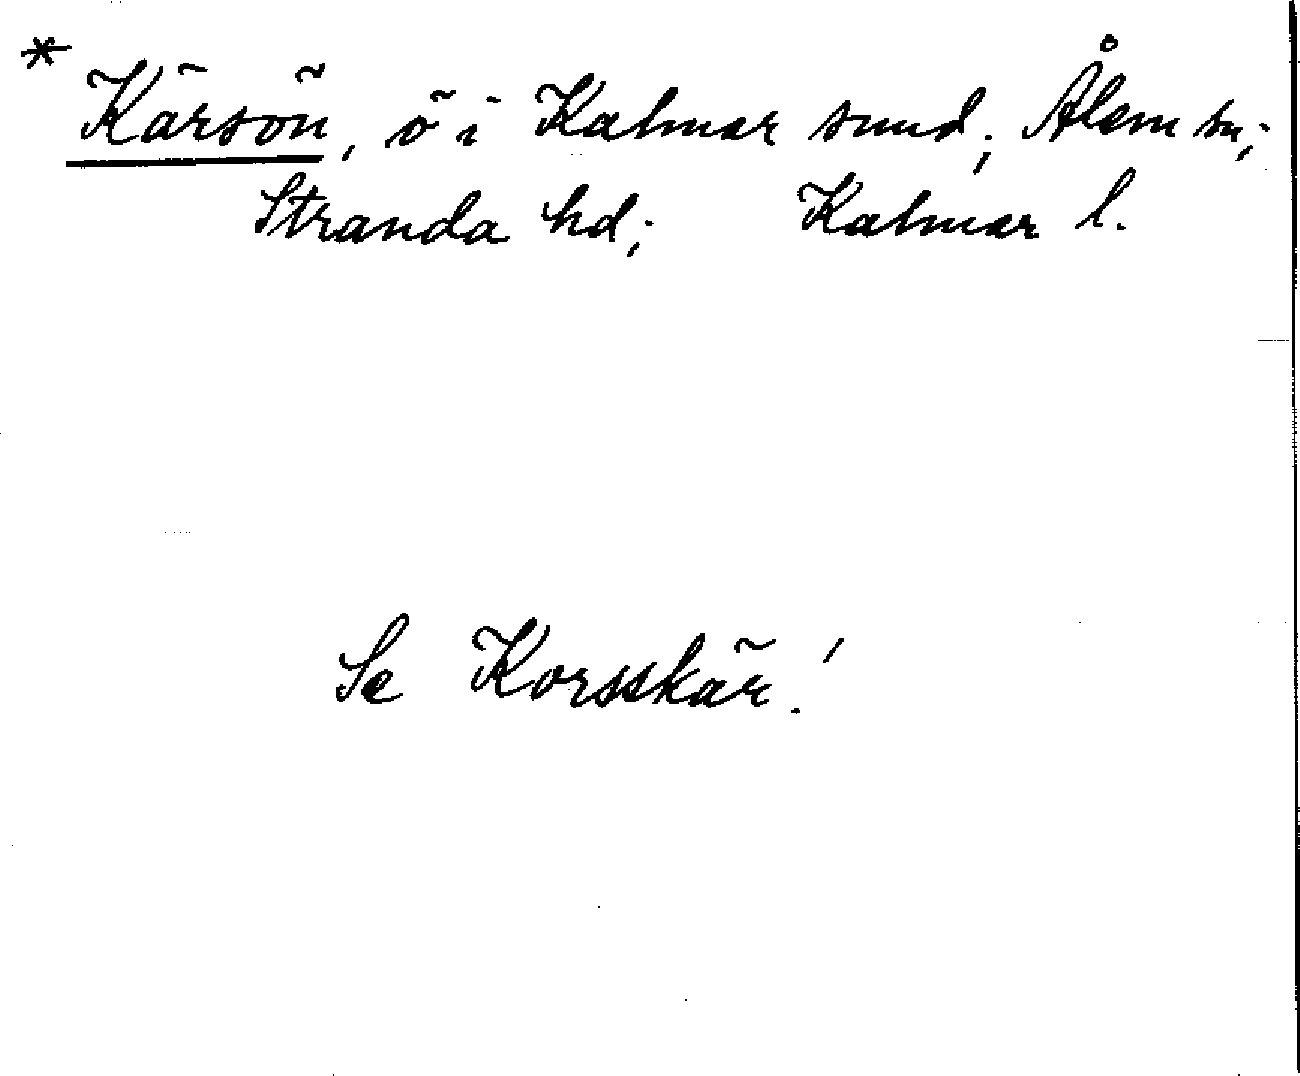 * Kärsön, ö i Kalmar sund; Ålem sn;
Stranda hd; Kalmar l.
Se Korsskär!